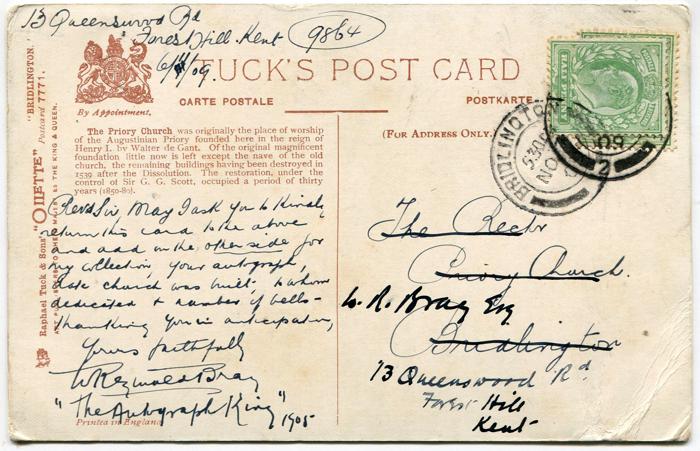 13 Queenswood Rd
Forest Hill. Kent
6/11/09.
9864
TUCK'S POST CARD
By Appointment.
CARTE POSTALE
POSTKARTE
(FOR ADDRESS ONLY.)
The Priory Church was originally the place of worship
of the Augustinian Priory founded here in the reign of
Henry I. by Walter de Gant. Of the original magnificent
foundation little now is left except the nave of the old
church, the remaining buildings having been destroyed in
1539 after the Dissolution. The restoration, under the
control of Sir G. G. Scott, occupied a period of thirty
years (1850-80).
Revd Sir, May I ask you to kindly
return this card to the above
and add on the other side for
my collection, your autograph,
date church was built, to whom
dedicated & number of bells -
Thanking you in anticipation,
Yours faithfully
W Reginald Bray
"The Autograph King" 1905
Printed in England
Raphael Tuck & Sons' "OILETTE" Postcard 7771. "BRIDLINGTON."
ART PUBLISHERS TO THEIR MAJESTIES THE KING & QUEEN.
BRIDLINGTON
NO
09
2
HALF PENNY
The Rectr
Priory Church.
W. R. Bray Esq
Bridlington
13 Queenswood Rd.
Forest Hill
Kent